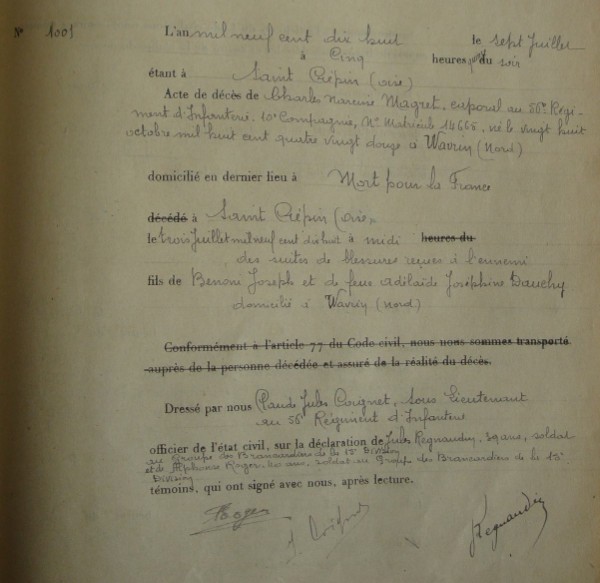 N° 1001 L'an mil neuf cent dix huit le sept Juillet
à Cinq heures du soir
étant à Saint Crépin (oise)
Acte de décès de Charles Narcisse Magret, caporal au 56e Régi-
ment d'Infanterie, 10e Compagnie, N° Matricule 14665, né le vingt huit
octobre mil huit cent quatre vingt douze à Wavrin (Nord)
domicilié en dernier lieu à Mort pour la France
décédé à Saint Crépin (oise)
le trois Juillet mil neuf cent dix huit à midi heures du
des suites de blessures reçues à l'ennemi
fils de Benoni Joseph et de feue Adélaïde Joséphine Dauchy
domicilié à Wavrin (Nord)
Conformément à l'article 77 du Code civil, nous nous sommes transporté
auprès de la personne décédée et assuré de la réalité du décès.
Dressé par nous Claude Jules Coignet, Sous Lieutenant
au 56e Régiment d'Infanterie
officier de l'état civil, sur la déclaration de Jules Regnaudin, 39 ans, soldat
au Groupe des Brancardiers de la 15e Division
et de Alphonse Roger, 20 ans, soldat au Groupe des Brancardiers de la 15e
Division
témoins, qui ont signé avec nous, après lecture.
Roger J. Coignet Regnaudin